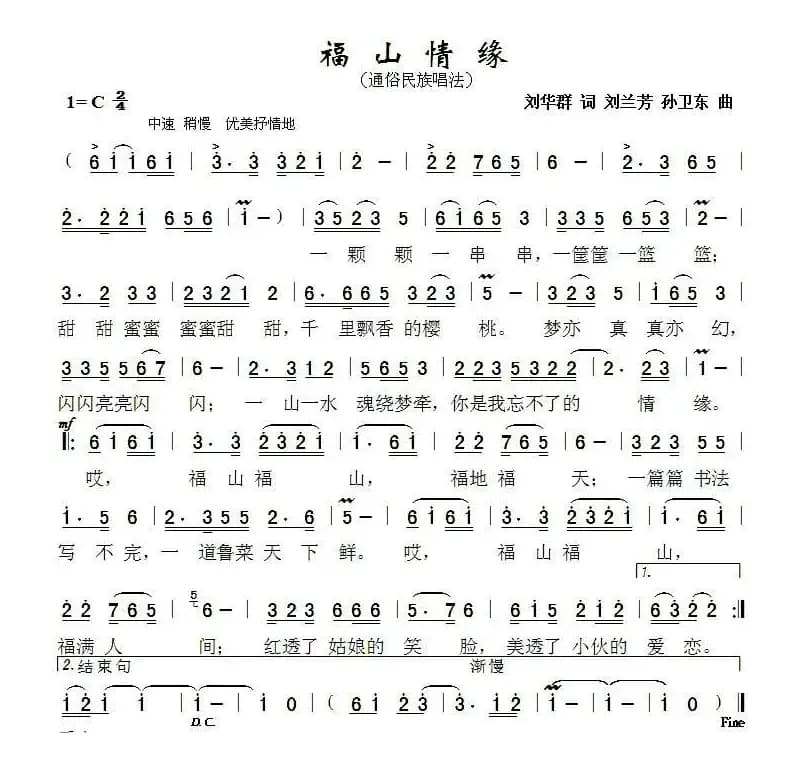 福山情缘
（通俗民族唱法）
1=C 2/4
刘华群 词 刘兰芳 孙卫东 曲
中速 稍慢 优美抒情地
（ 6 i i 6 i | 3· 3 2 i | 2 − | 2 2 7 6 5 | 6 − | 2· 3 6 5 |
2· 2 2 i 6 5 6 | i − ） | 3 5 2 3 5 | 6 i 6 5 3 | 3 3 5 6 5 3 | 2 − |
一 颗 颗 一 串 串，一筐筐 一 篮 篮；
3· 2 3 3 | 2 3 2 1 2 | 6· 6 6 5 3 2 3 | 5 − | 3· 2 3 5 | i 6 5 3 |
甜 甜 蜜蜜 蜜蜜甜 甜，千 里飘香 的樱 桃。 梦亦 真 真亦 幻，
3 3 5 5 6 7 | 6 − | 2· 3 1 2 | 5 6 5 3 | 2 3 5 3 2 1 2 | 2· 2 3 | 1 − |
闪闪亮亮闪 闪； 一 山一水 魂绕梦牵，你是我忘不了的 情 缘。
mf
‖: 6 i 6 i | 3· 3 2 3 2 i | i 6 i | 2 2 7 6 5 | 6 − | 3 2 3 5 5 |
哎， 福 山福 山， 福地 福 天；一篇篇 书法
1· 5 6 | 2· 3 5 5 2· 6 | 5 − | 6 i 6 i | 3· 3 2 3 2 i | i 6 i |
写 不 完，一 道鲁菜 天 下 鲜。哎， 福 山福 山，
1.
2 2 7 6 5 | 5 6 − | 3 2 3 6 6 6 | 5· 7 6 | 5 6 5 2 1 2 | 6 3 2 2 :‖
福满 人 间； 红透了 姑娘的 笑 脸，美透了 小伙的 爱 恋。
2. 结束句 渐慢
i 2 i | i − | i 0 | 6 2 3 | 3· i 2 | i − | i − | i 0 ） ‖
D.C. Fine